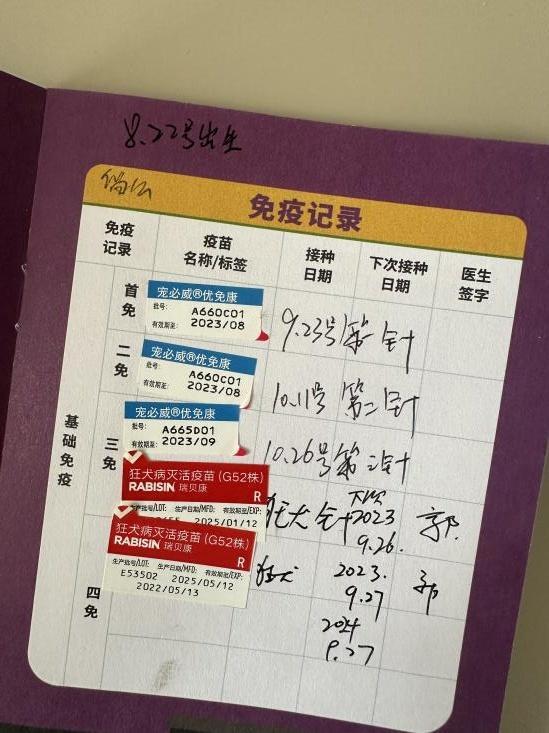 8.22号出生
免疫记录
免疫记录
疫苗名称/标签
接种日期
下次接种日期
医生签字
基础免疫
首免
宠必威®优免康
批号: A660C01
有效期至: 2023/08
9.23号第一针
二免
宠必威®优免康
批号: A660C01
有效期至: 2023/08
10.11号 第二针
三免
宠必威®优免康
批号: A665D01
有效期至: 2023/09
10.26号第三针
狂犬病灭活疫苗(G52株)
RABISIN 瑞贝康
R
生产批号/LOT: 生产日期/MFD: 有效期至/EXP:
2025/01/12
狂犬针
下次
2023
9.26.
郭.
狂犬病灭活疫苗(G52株)
RABISIN 瑞贝康
R
生产批号/LOT: 生产日期/MFD: 有效期至/EXP:
E53502 2025/05/12
2022/05/13
狂犬
2023.
9.27
郭
四免
2024
9.27